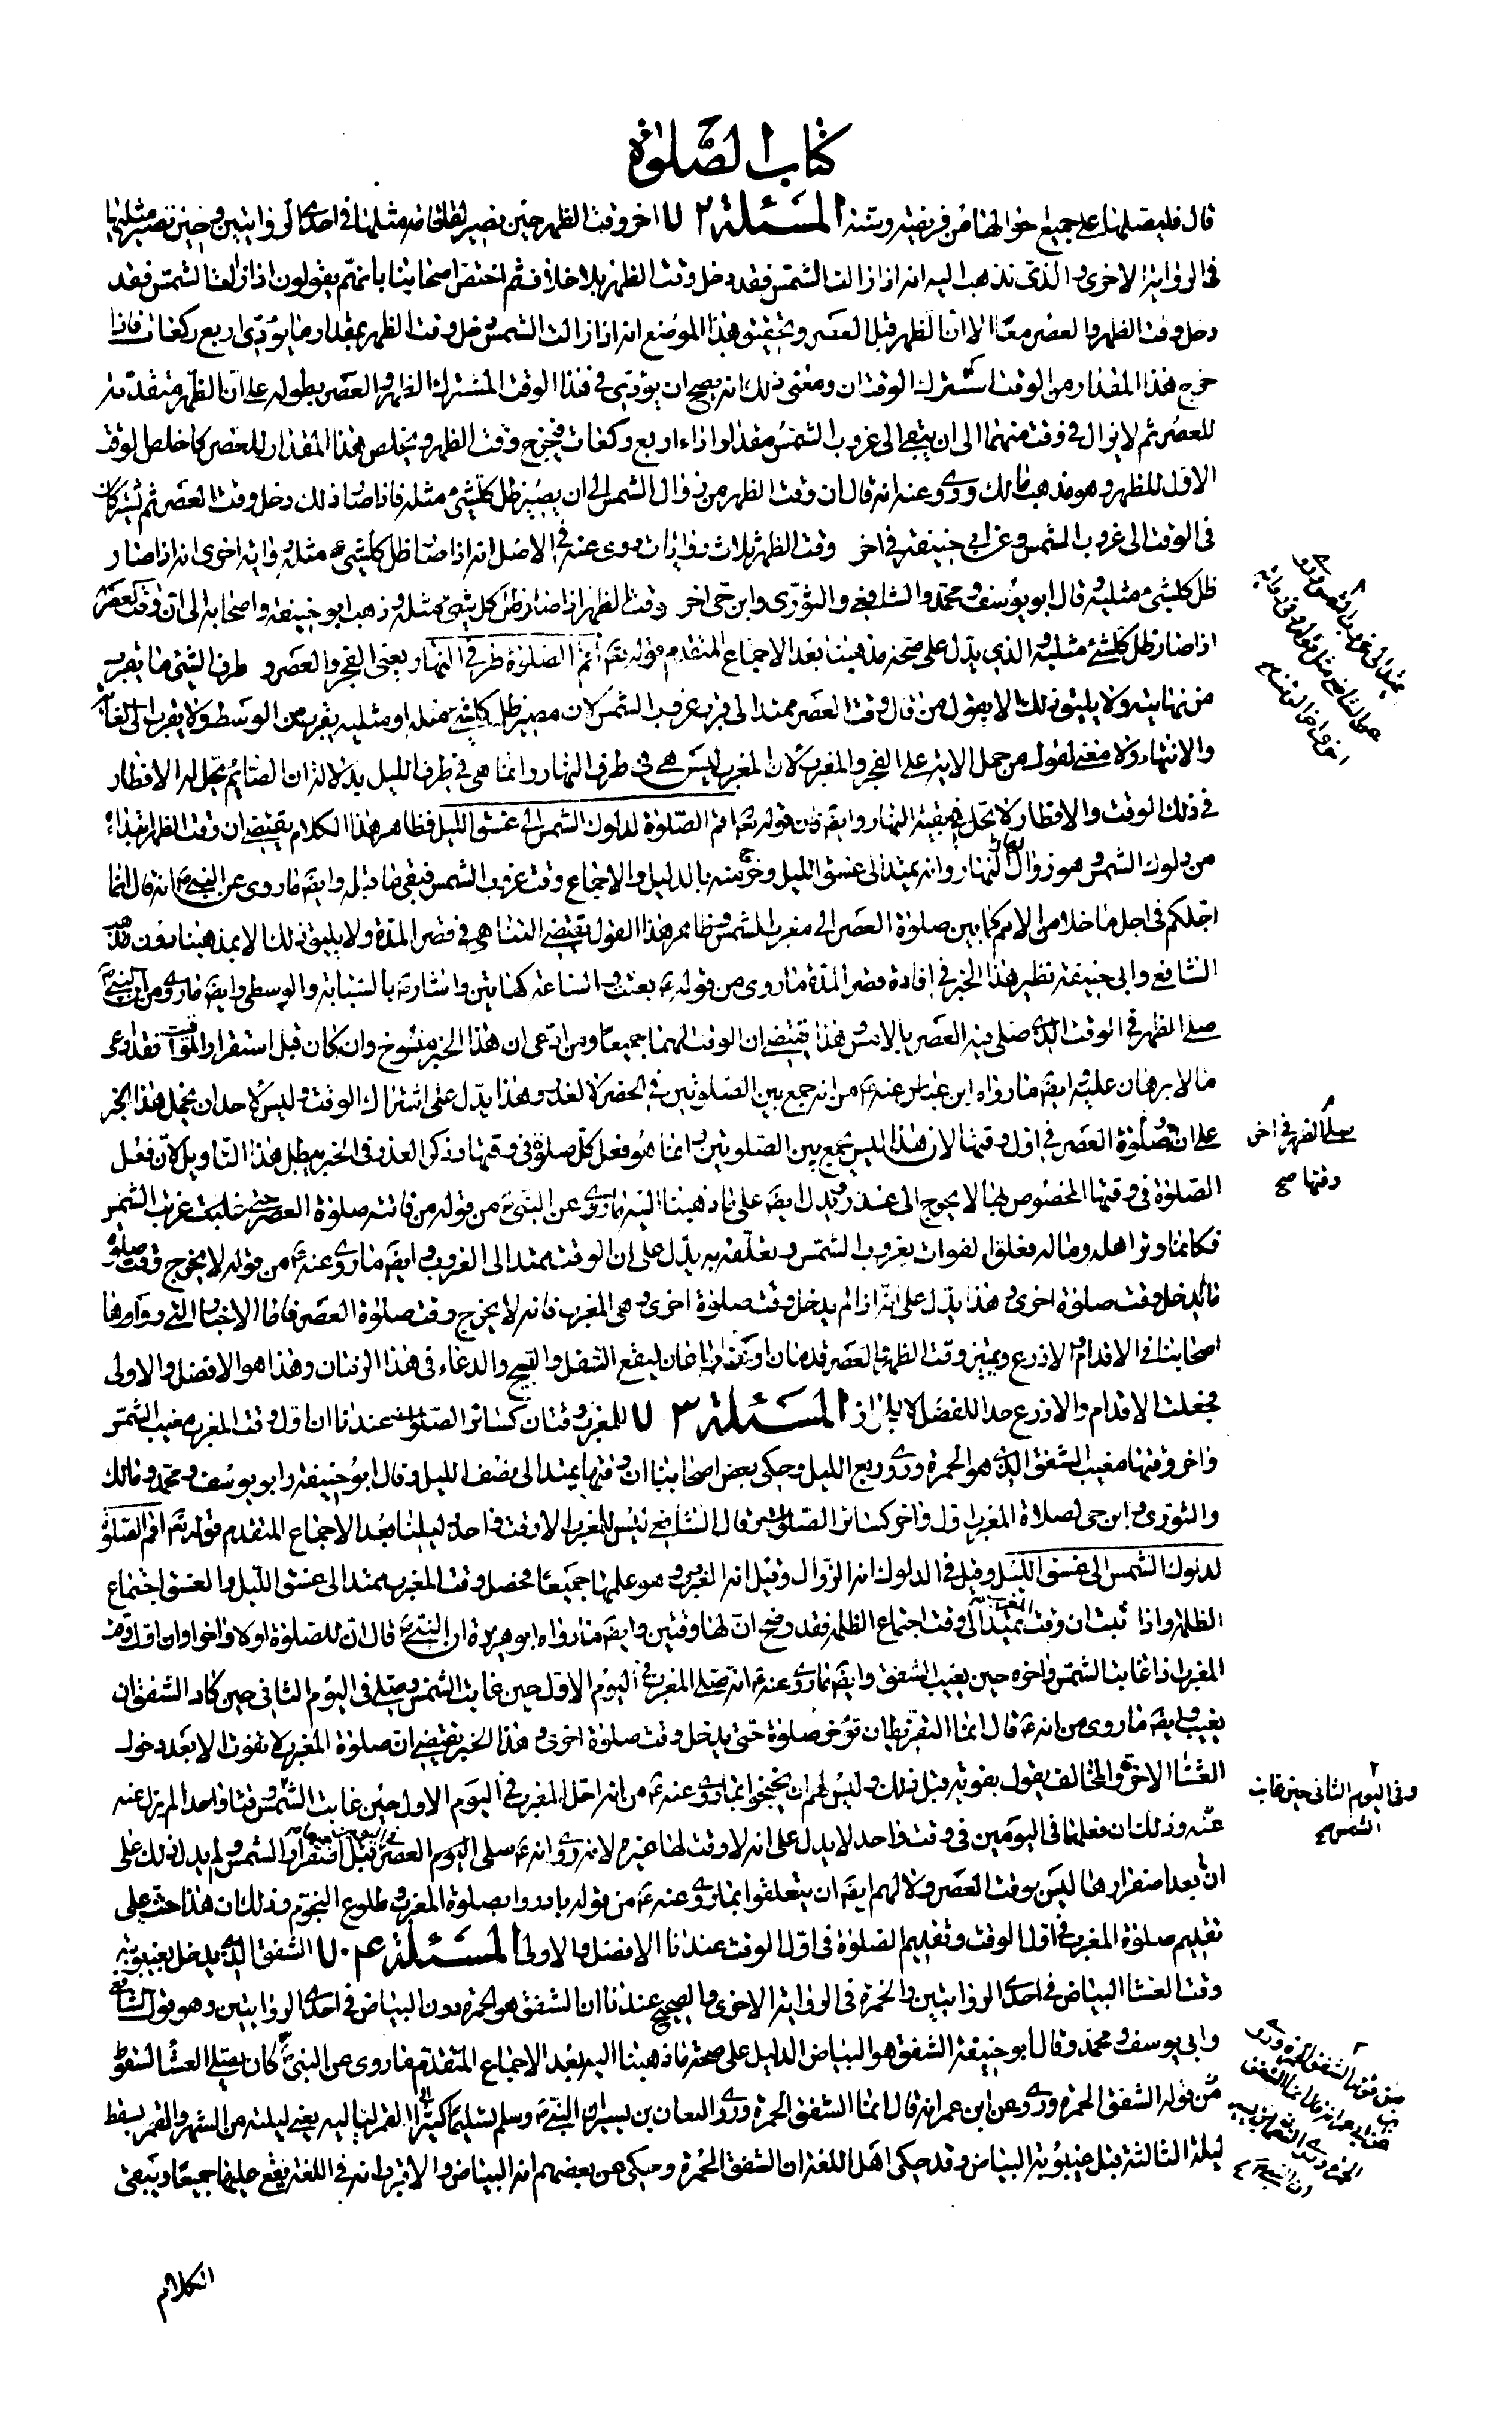 كتاب الصلوة
قال فليصلها على جميع احوالها من فريضة وسنة المسئلة ٧٢ اخر وقت الظهر حين يصير مثلها في احدى الروايتين وحين تصير مثليها
في الرواية الاخرى الذي نذهب اليه انه اذا زالت الشمس فقد دخل وقت الظهر بلا خلاف ثم اختص اصحابنا بانهم يقولون اذا زالت الشمس فقد
دخل وقت الظهر والعصر معا الا ان الظهر قبل العصر وتحقيق هذا الموضع انه اذا زالت الشمس دخل وقت الظهر بمقدار ما يؤدى اربع ركعات فاذا
خرج هذا المقدار من الوقت اشترك الوقتان ومعنى ذلك انه يصح ان يؤدى في هذا الوقت المشترك الظهر والعصر بطوله على ان الظهر متقدمة
للعصر ثم لا يزال في وقت منهما الى ان يبقى الى غروب الشمس مقدار اداء اربع ركعات فيخرج وقت الظهر ويخلص هذا المقدار للعصر كما خلص الوقت
الاول للظهر وهو مذهب مالك وروى عنه انه قال ان وقت الظهر من زوال الشمس الى ان يصير ظل كلشيء مثله فاذا صار ذلك دخل وقت العصر ثم يشتركان
في الوقت الى غروب الشمس وعن ابي حنيفة في اخر وقت الظهر ثلاث روايات روى عنه في الاصل انه اذا صار ظل كلشيء مثله رواية اخرى انه اذا صار
ظل كلشيء مثليه وقال ابو يوسف ومحمد والشافعي والثوري وابن حي اخر وقت الظهر اذا صار ظل كل شيء مثله وذهب ابو حنيفة واصحابه الى ان وقت العصر
اذا صار ظل كلشيء مثليه والذي يدل على صحة مذهبنا بعد الاجماع المتقدم قوله تعم اقم الصلوة طرفي النهار يعني الفجر والعصر وطرف الشيء ما يقرب
من نهايته ولا يليق ذلك الا بقول من قال وقت العصر ممتد الى قرب غروب الشمس لان مصير ظل كلشيء مثله او مثليه يقرب من الوسط ولا يقرب الى الغاية
والانتهاء ولا معنى لقول من حمل الاية على الفجر والمغرب لان المغرب ليس هي في طرف النهار وانما هي في طرف الليل بدلالة ان الصايم يحل له الافطار
في ذلك الوقت والافطار لا يحل في بقية النهار وايضا فان قوله تعم اقم الصلوة لدلوك الشمس الى غسق الليل فظاهر هذا الكلام يقتضى ان وقت الظهر ابتداءه
من دلوك الشمس وهو زوال النهار وانه يمتد الى غسق الليل وخرج منه بالدليل والاجماع وقت غروب الشمس فبقى ما قبله وايضا ما روى عن النبي انه قال انما
اجلكم في اجل ما خلا من الامم كما بين صلوة العصر الى مغرب الشمس وظاهر هذا القول يقتضى التناهى في قصر المدة ولا يليق ذلك الا بمذهبنا دون مذهب
الشافعي وابي حنيفة نظير هذا الخبر في افادة قصر المدة ما روى من قوله بعثت والساعة كهاتين واشارته بالسبابة والوسطى وايضا ما روى من ان النبي
صلى الظهر في الوقت الذي صلى فيه العصر بالامس وهذا يقتضى ان الوقت لهما جميعا ومن ادعى ان هذا الخبر منسوخ وانه كان قبل استقرار المواقيت فقد ادعى
ما لا برهان عليه وايضا ما رواه ابن عباس عنه من انه جمع بين الصلوتين في الحضر لا لعذر وهذا يدل على اشتراك الوقت وليس لاحد ان يحمل هذا الخبر
على ان صلوة العصر في اول وقتها لان هذا ليس بجمع بين الصلوتين وانما هو فعل كل صلوة في وقتها وذكر العذر في الخبر يبطل هذا التاويل لان فعل
الصلوة في وقتها المخصوص بها لا يحوج الى عذر ويدل ايضا على ما ذهبنا اليه ما روى عن النبي من قوله من فاتته صلوة العصر حتى غابت غربت الشمس
فكانما وتر اهله وماله فعلق الفوات بغروب الشمس وتعلقه به يدل على ان الوقت يمتد الى الغروب وايضا ما روى عنه من قوله لا يخرج وقت صلوة
ما لم يدخل وقت صلوة اخرى وهذا يدل على انه اذا لم يدخل وقت صلوة اخرى وهي المغرب فانه لا يخرج وقت صلوة العصر فاما الاخبار التي رواها
اصحابنا في الاقدام والاذرع وتميز وقت الظهر والعصر قدمان او ذراعان ليقع التنفل والتسبيح والدعاء في هذا الزمان وهذا هو الافضل والاولى
فجعلت الاقدام والاذرع حدا للفضل لا للجواز المسئلة ٧٣ للمغرب وقتان كسائر الصلوات عندنا ان اول وقت المغرب مغيب الشمس
واخر وقتها مغيب الشفق الذي هو الحمرة وروى ربع الليل وحكى بعض اصحابنا ان وقتها يمتد الى نصف الليل وقال ابو حنيفة وابو يوسف ومحمد ومالك
والثوري وابن حي لصلاة المغرب اول واخر كسائر الصلوات وقال الشافعي ليس للمغرب الا وقت واحد دليلنا بعد الاجماع المتقدم قوله تعم اقم الصلوة
لدلوك الشمس الى غسق الليل وقيل في الدلوك انه الزوال وقيل انه الغروب وهو عليهما جميعا فحصل وقت المغرب ممتد الى غسق الليل والغسق اجتماع
الظلمة واذا ثبت ان وقت المغرب يمتد الى وقت اجتماع الظلمة فقد وضح ان لها وقتين وايضا ما رواه ابو هريرة ان النبي قال ان للصلوة اولا واخرا وان اول وقت
المغرب اذا غابت الشمس واخره حين يغيب الشفق وايضا ما روى عنه انه صلى المغرب في اليوم الاول حين غابت الشمس وصلى في اليوم الثاني حين كاد الشفق ان
يغيب وايضا ما روى من انه قال انما التفريط ان تؤخر صلوة حتى يدخل وقت صلوة اخرى وهذا الخبر يقتضى ان صلوة المغرب لا تفوت الا بعد دخول
العشاء الاخرة والمخالف يقول بفوته قبل ذلك وليس لهم ان يحتجوا بما روى عنه من انه صلى المغرب في اليوم الاول حين غابت الشمس وقتا واحدا لم يزل عنه
عنه وذلك ان فعلها في اليومين في وقت واحد لا يدل على انه لا وقت لها غيره لانه روى انه صلى اليوم العصر قبل اصفرار الشمس ولم يدل ذلك على
ان بعد اصفرارها ليس بوقت العصر ولا لهم ايضا ان يتعلقوا بما روى عنه من قوله بادروا بصلوة المغرب طلوع النجوم وذلك ان هذا حث على
تقديم صلوة المغرب في اول الوقت وتقديم الصلوة في اول الوقت عندنا الافضل والاولى المسئلة ٧٤ الشفق الذي يدخل بغيبوبته
وقت العشاء البياض في احدى الروايتين والحمرة في الرواية الاخرى والصحيح عندنا ان الشفق هو الحمرة دون البياض في احدى الروايتين وهو قول الشافعي
وابي يوسف ومحمد وقال ابو حنيفة الشفق هو البياض الدليل على صحة ما ذهبنا اليه بعد الاجماع المتقدم ما روى عن النبي كان يصلى العشاء لسقوط
من قوله الشفق الحمرة وروى عن ابن عمر انه قال انما الشفق الحمرة وروى النعمان بن بشير ان النبي وسلم تسليما كثيرا القمر ليلة يعني ليلة من الشهر والقمر يسقط
ليلة الثالثة قبل غيبوبة البياض وقد حكى اهل اللغة ان الشفق الحمرة وحكى عن بعضهم انه البياض والاقرب انه في اللغة يقع عليهما جميعا ويبقى
صلى الظهر في اخر
وقتها صح
وفى اليوم الثاني حين غابت
الشمس صح
الكلام